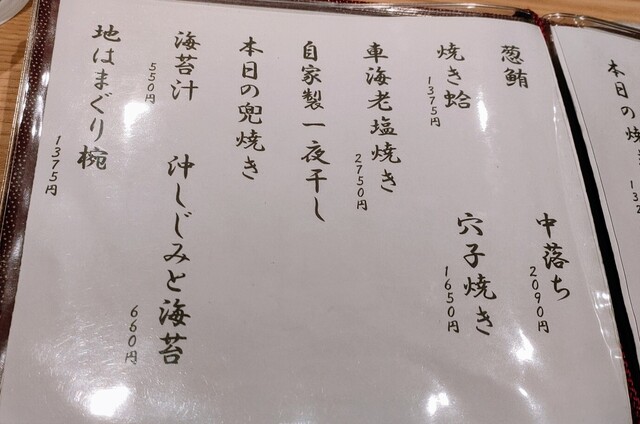 本日の焼
葱鮪
中落ち
2090円
焼き蛤
1375円
穴子焼き
1650円
車海老塩焼き
2750円
自家製一夜干し
本日の兜焼き
海苔汁
550円
沖しじみと海苔
660円
地はまぐり椀
1375円